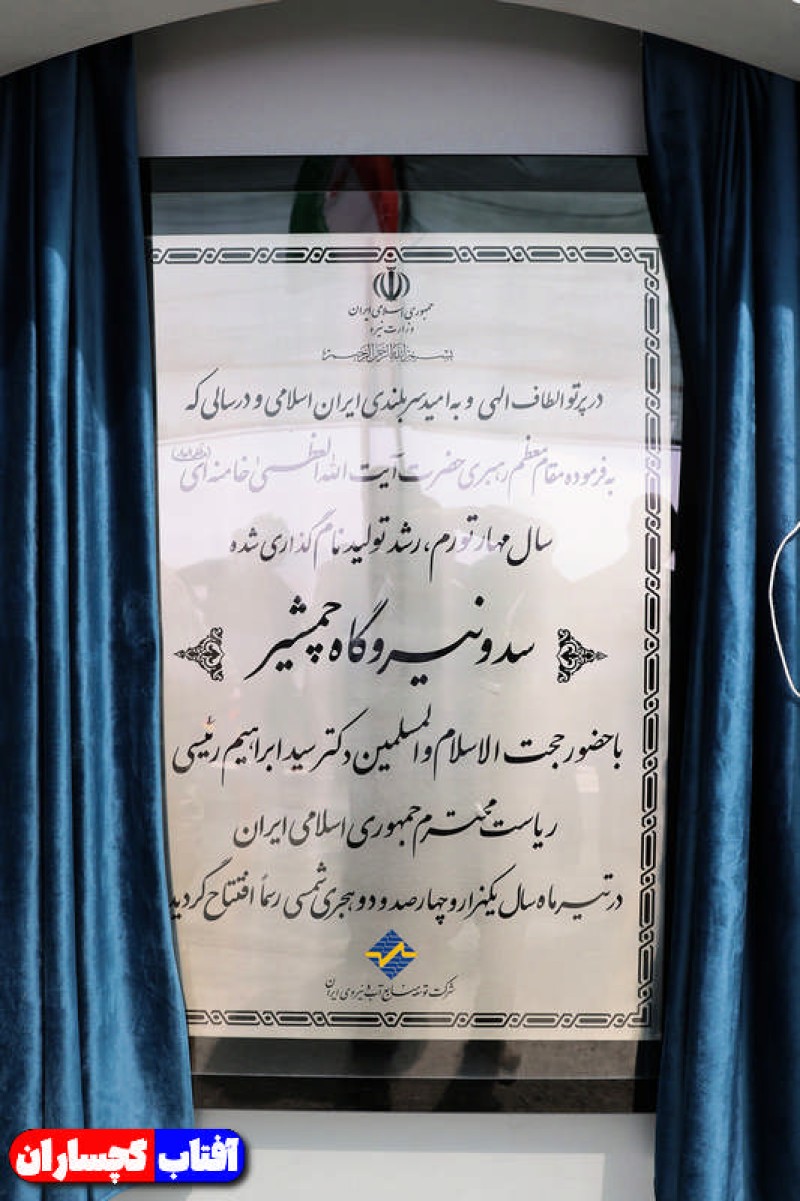 جمهوری اسلامی ایران
وزارت نیرو
بسم الله الرحمن الرحیم
در پرتو الطاف الهی و به امید سربلندی ایران اسلامی و در سالی که
به فرموده مقام معظم رهبری حضرت آیت الله العظمی خامنه ای
سال مهار تورم، رشد تولید نام گذاری شده
سد و نیروگاه چمشیر
با حضور حجت الاسلام والمسلمین دکتر سید ابراهیم رئیسی
ریاست محترم جمهوری اسلامی ایران
در تیر ماه سال یکهزار و چهارصد و دو هجری شمسی رسماً افتتاح گردید
شرکت توسعه منابع آب و نیروی ایران
آفتاب گچساران